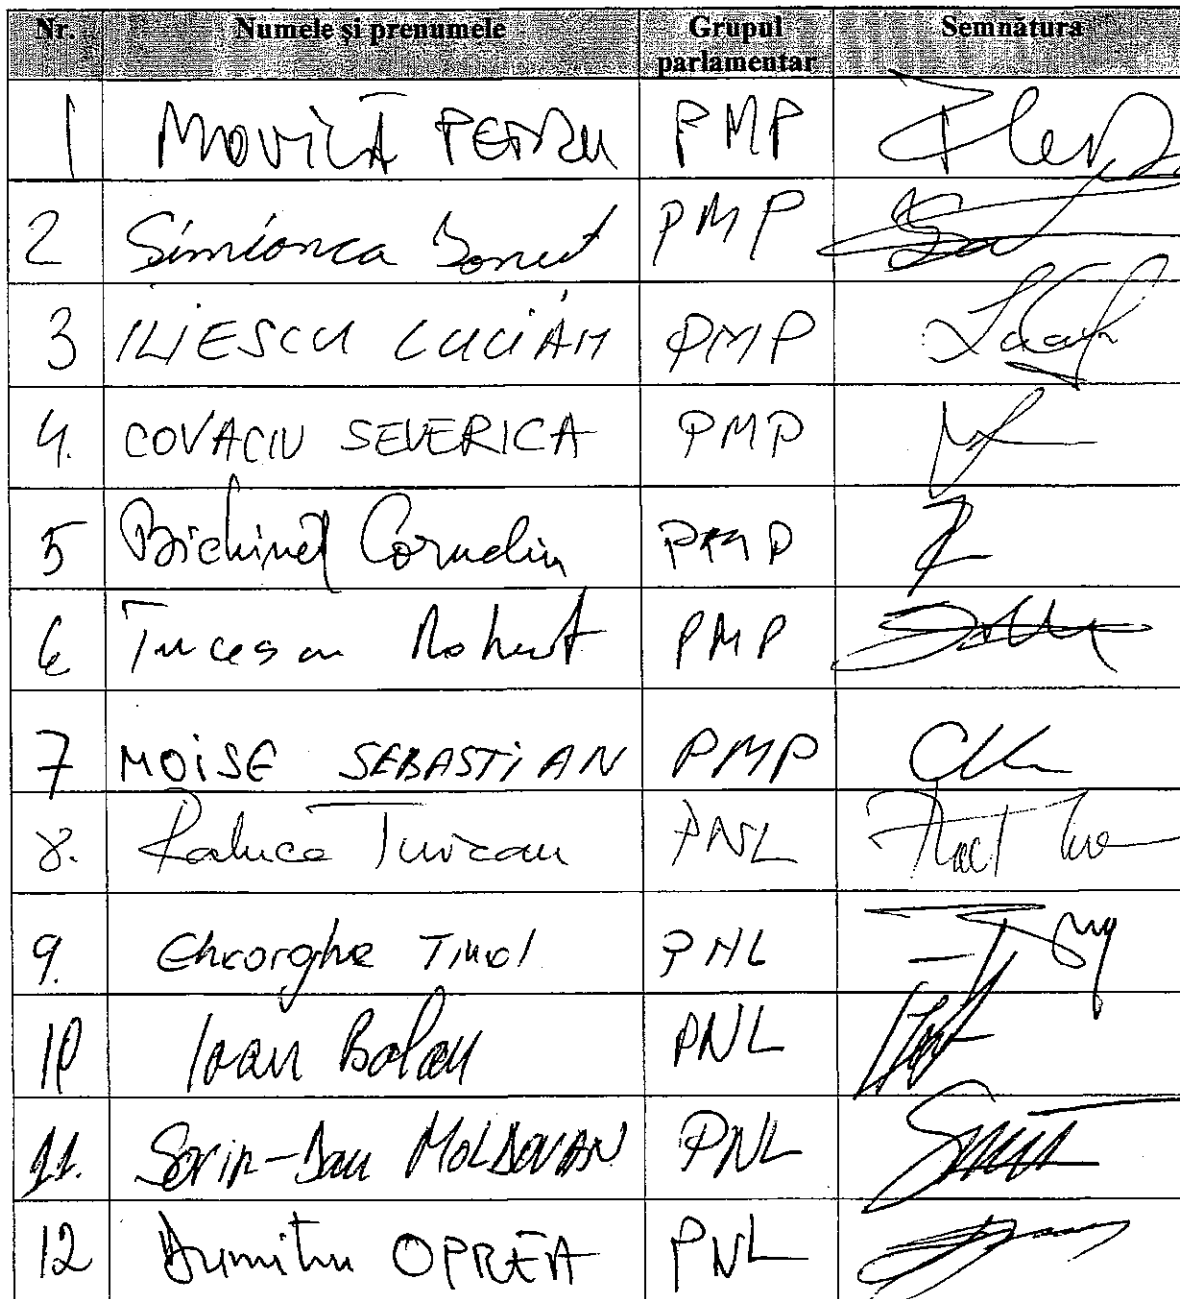 Nr. Numele și prenumele Grupul parlamentar Semnătura
1 MOVILĂ PETRU PMP
2 Simionca Ionuț PMP
3 ILIESCU LUCIAN PMP
4. COVACIU SEVERICA PMP
5 Bichineț Corneliu PMP
6 Turcescu Robert PMP
7 MOISE SEBASTIAN PMP
8. Raluca Turcan PNL
9. Gheorghe Tinel PNL
10 Ioan Balan PNL
11. Sorin-Dan MOLDOVAN PNL
12 Dumitru OPREA PNL